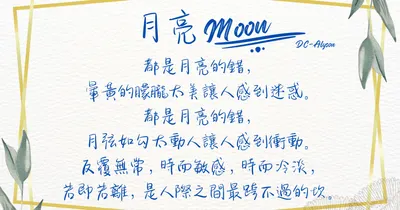 月亮 Moon
DC-Alyson
都是月亮的錯,
暈黃的朦朧太美讓人感到迷惑。
都是月亮的錯,
月弦如勾太動人讓人感到衝動。
反覆無常,時而敏感,時而冷淡,
若即若離,是人際之間最跨不過的坎。